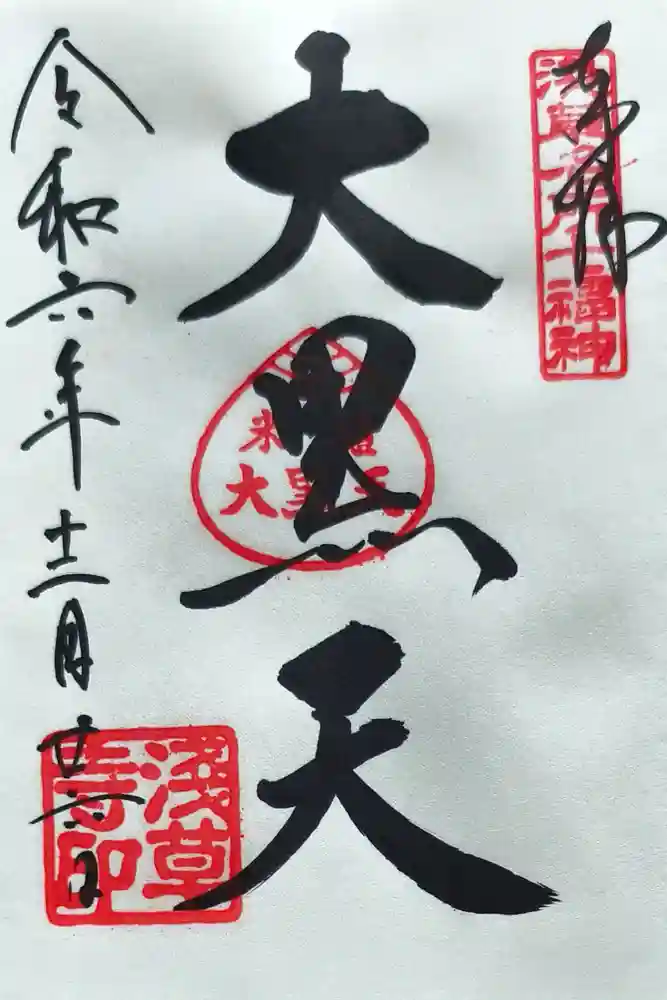 奉拝
浅草名所七福神
大黒天
米櫃
大黒天
令和六年十二月廿日
淺草
寺印